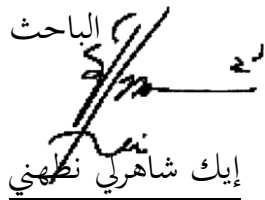 الباحث
إيك شاهرلي نظهني